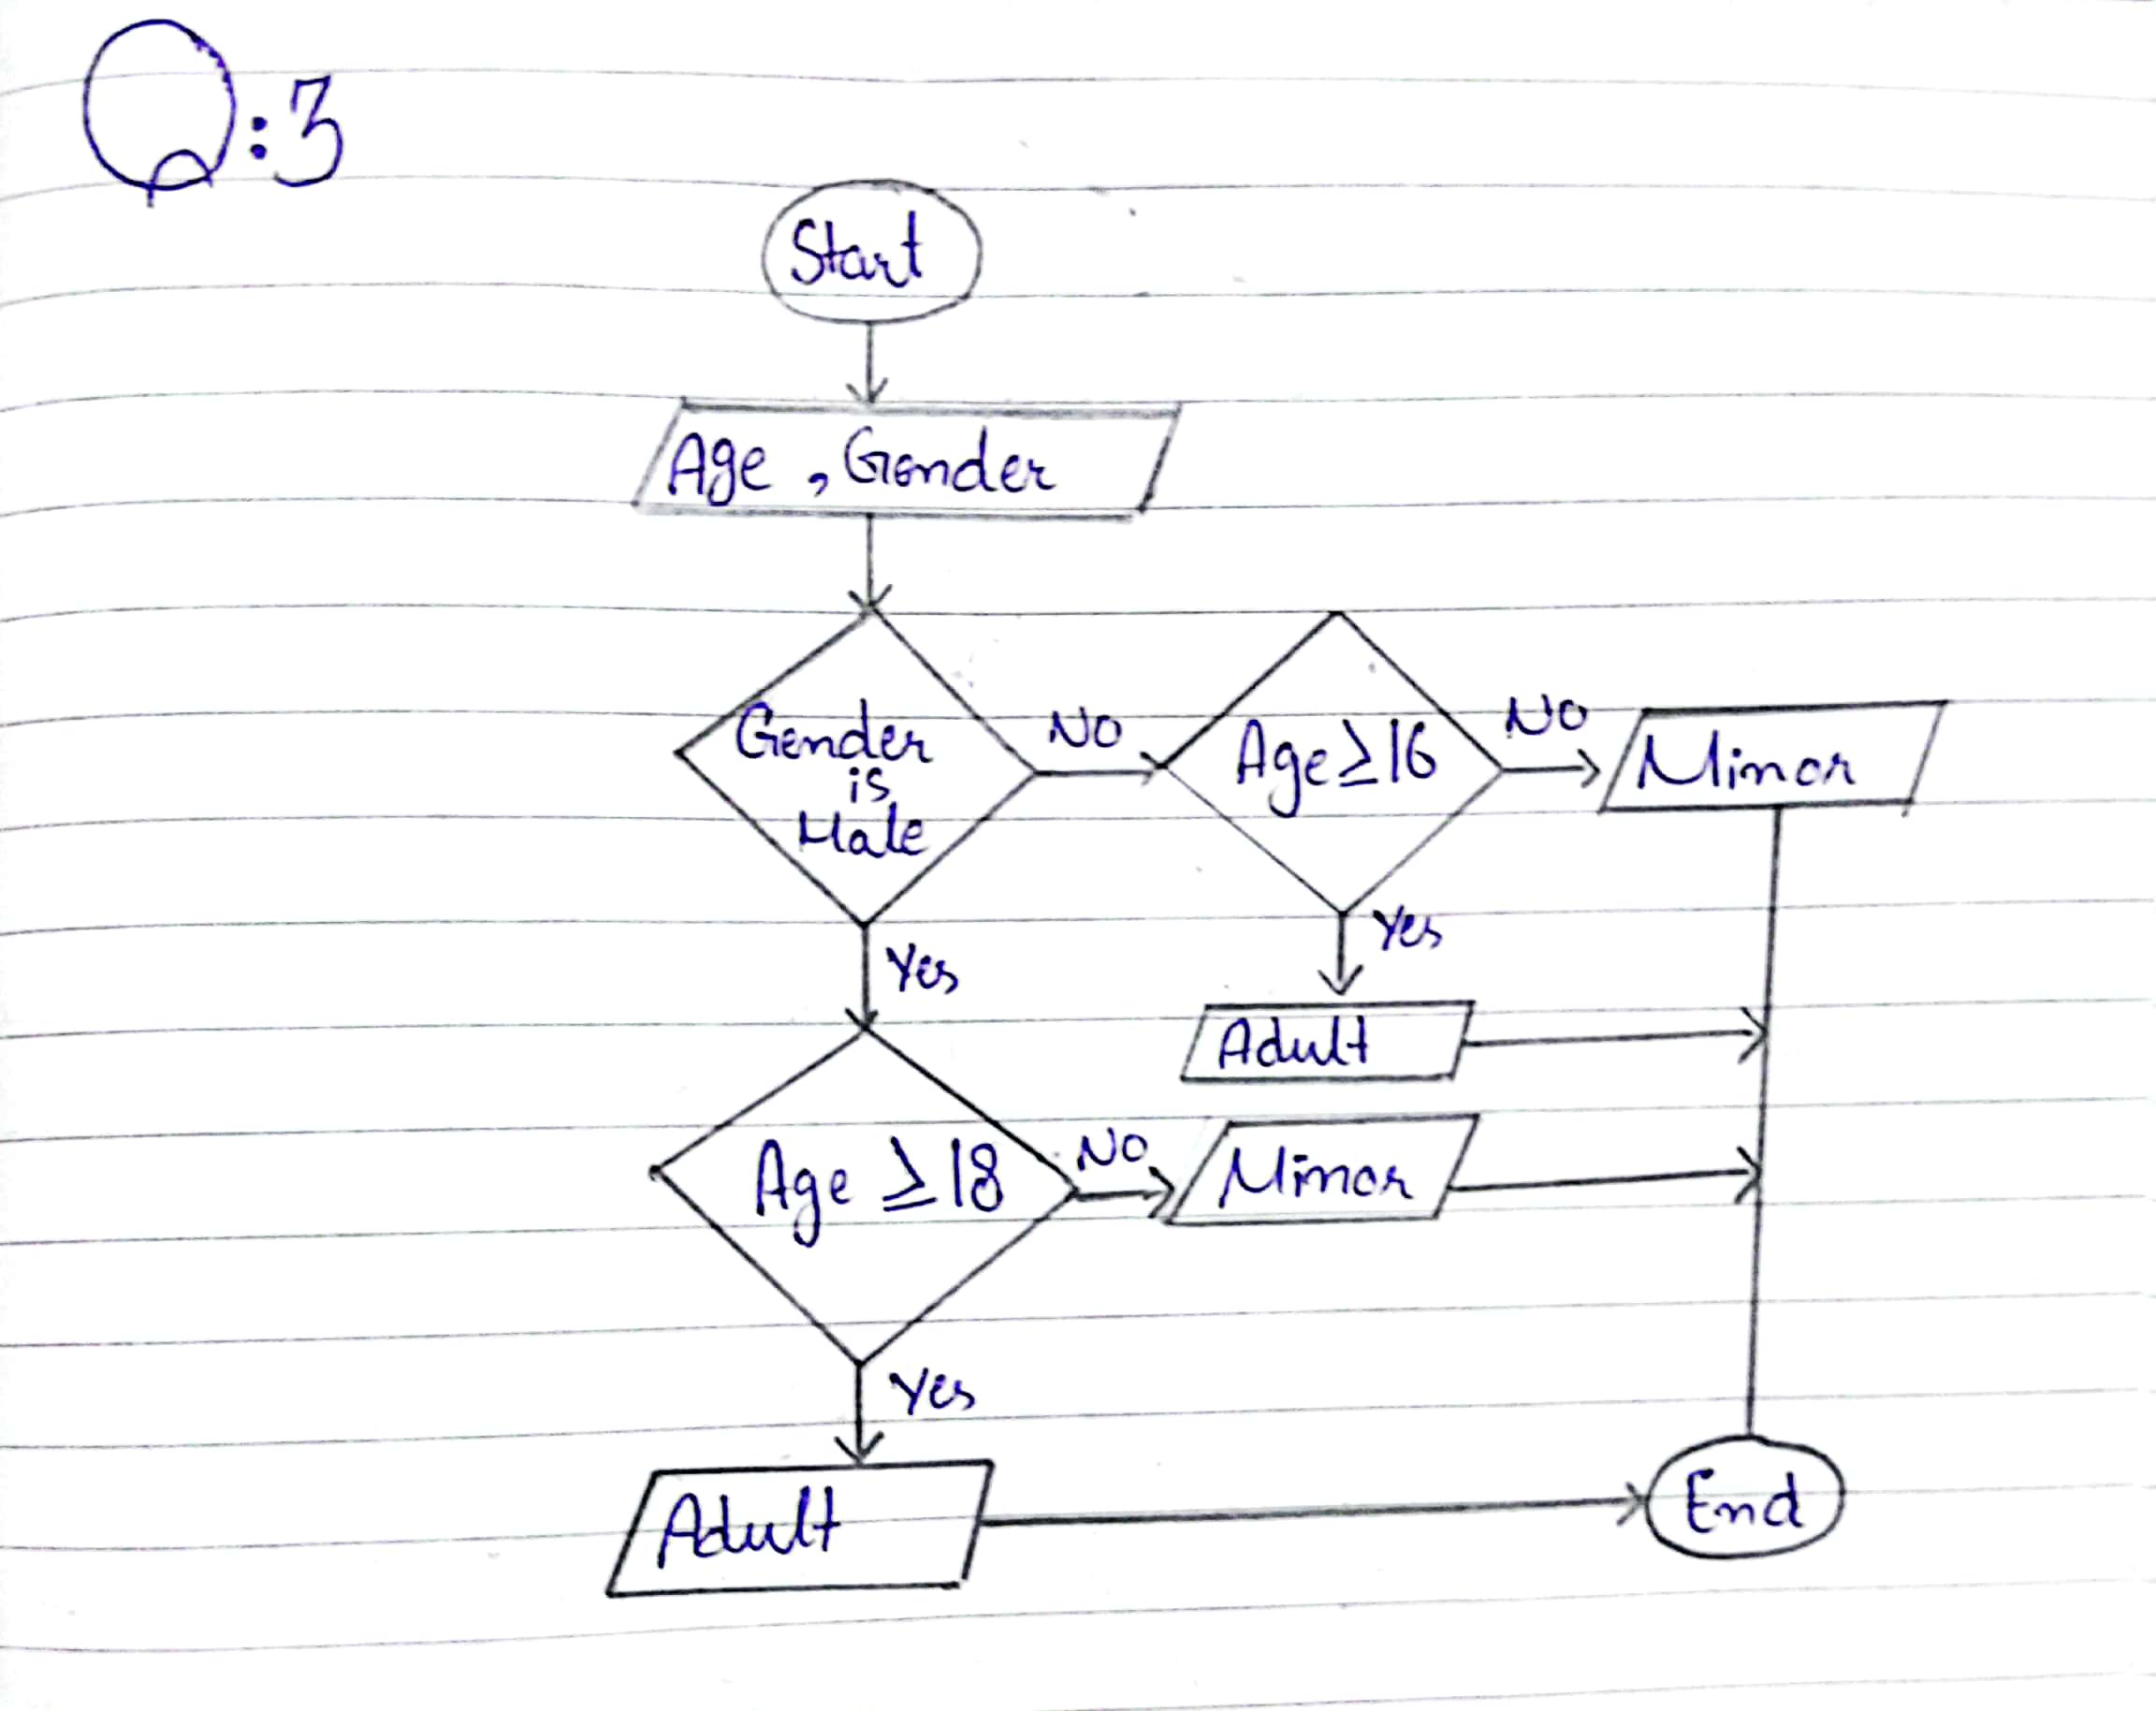 Q:3
Start
Age , Gender
Gender
is
Male
NO
Age ≥ 16
NO
Minor
Yes
Yes
Adult
Age ≥ 18
NO
Minor
Yes
Adult
End